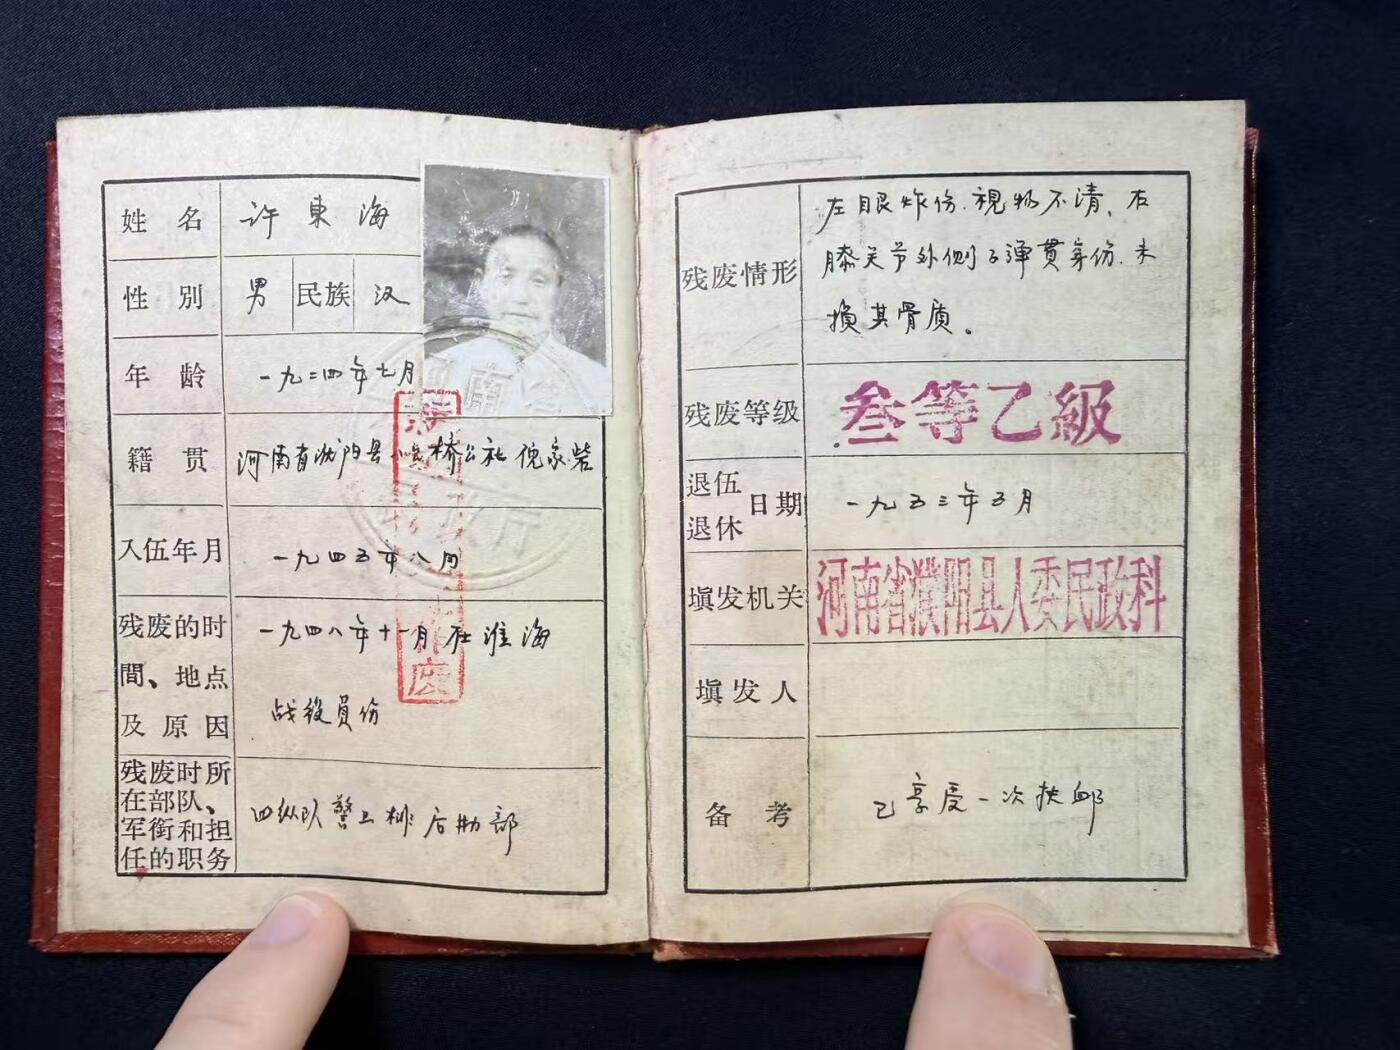 姓名 許東海
性別 男 民族 汉
年龄 一九二四年七月
籍贯 河南省濮阳县 桥公社 倪家砦
入伍年月 一九四五年八月
残废的时間、地点及原因 一九四八年十一月在淮海
战役負伤
残废时所在部队、军衔和担任的职务 四纵队警卫排后勤部
河南 政厅
残废
残废情形 左眼炸伤.視物不清、右
膝关节外侧子弹貫穿伤.未
损其骨质。
残废等级 叁等乙級
退伍退休日期 一九五三年五月
填发机关 河南省濮阳县人委民政科
填发人
备考 已享受一次抚邮